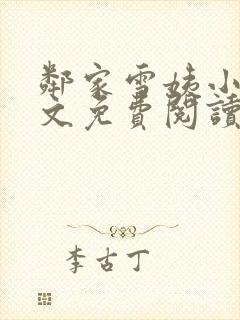 鄰家雪姨小
文免費閱讀
李古丁